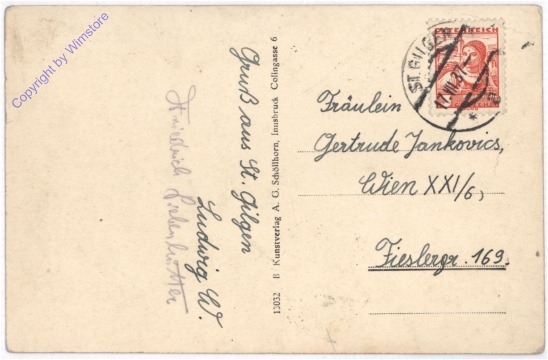 Copyright by Wimstore
Gruß aus St. Gilgen
Ludwig W.
Friedrich
13032 B Kunstverlag A. G. Schöllhorn, Innsbruck Colingasse 6
ÖSTERREICH
ST. GILGEN
Fräulein
Gertrude Jankovics,
Wien XXI/6,
Fieslergr. 169.